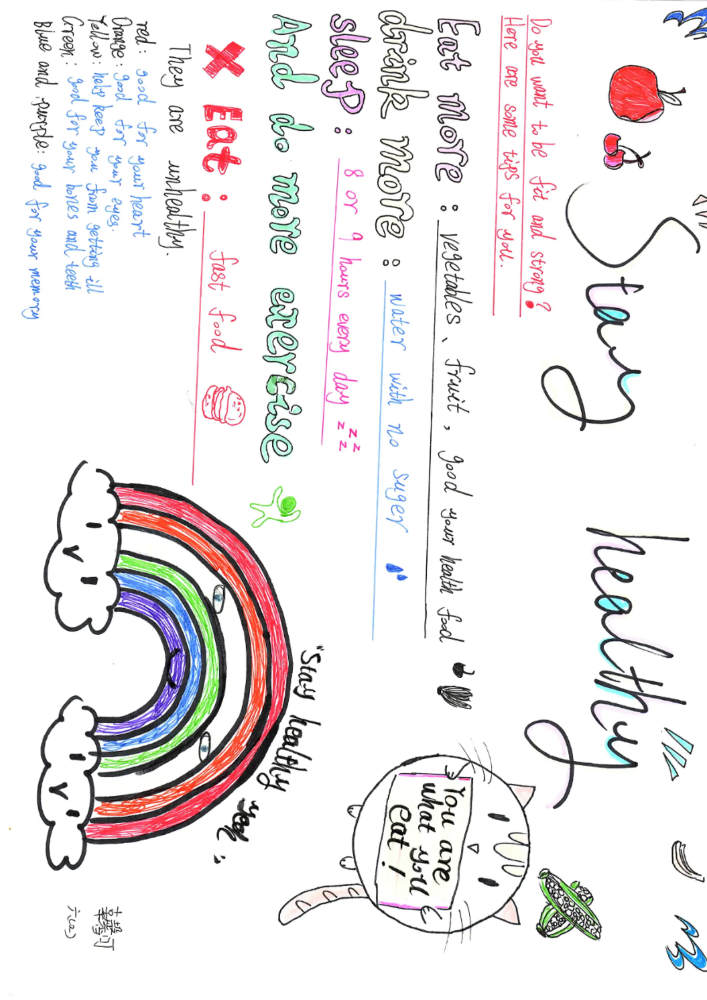 Stay healthy
Do you want to be fit and strong?
Here are some tips for you.
Eat more: vegetables、fruit, good your health food
drink more: water with no suger
sleep: 8 or 9 hours every day zzz
And do more exercise
× Eat: fast food
They are unhealthy.
red: good for your heart
Orange: good for your eyes.
Yellow: help keep you from getting ill
Green: good for your bones and teeth
Blue and purple: good for your memory
"Stay healthy yeah"
You are
what you
eat!
六(2)